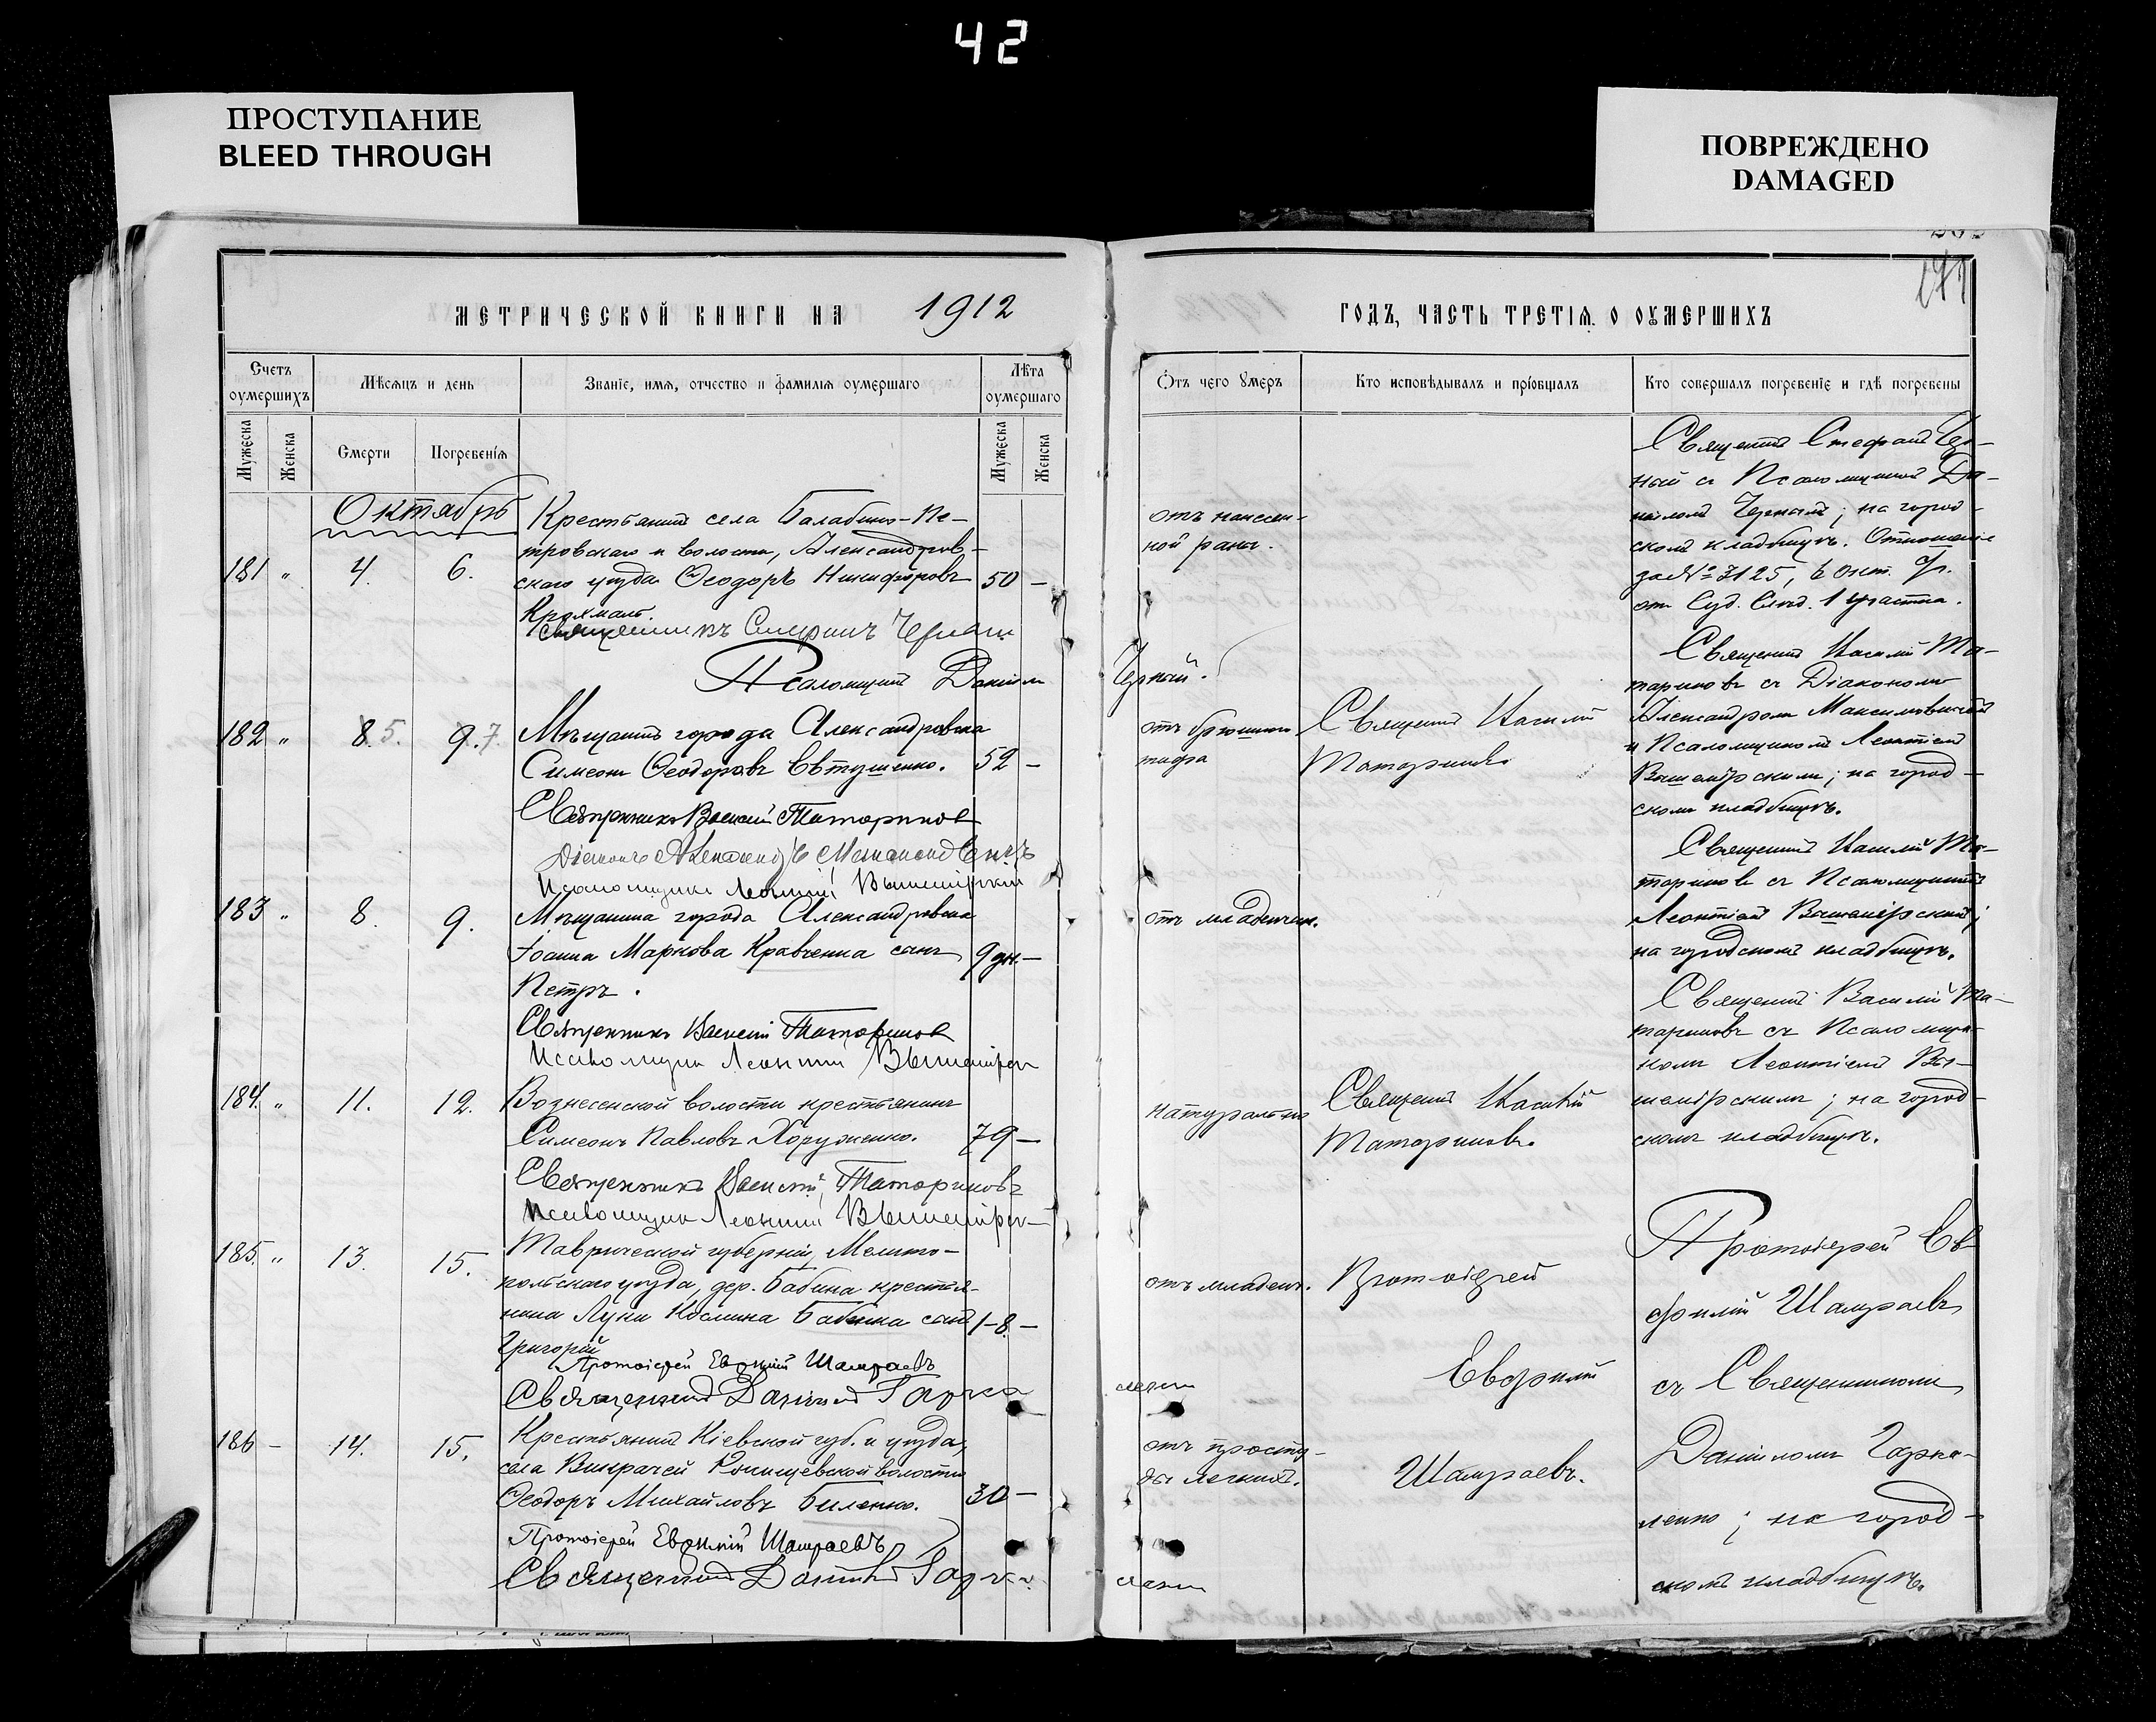 42
ПРОСТУПАНИЕ
BLEED THROUGH
ПОВРЕЖДЕНО
DAMAGED
171
МЕТРИЧЕСКОЙ КНИГИ НА 1912
ГОДЪ, ЧАСТЬ ТРЕТІЯ О ОУМЕРШИХЪ
Счетъ оумершихъ
Мѣсяцъ и день
Званіе, имя, отчество и фамилія оумершаго
Лѣта оумершаго
Отъ чего умеръ
Кто исповѣдывалъ и пріобщалъ
Кто совершалъ погребеніе и гдѣ погребены
Мужеска
Женска
Смерти
Погребенія
Мужеска
Женска
Октябрь
181 " 4. 6.
Крестьянинъ села Балабино-Пе-
тровскаго и волости, Александров-
скаго уѣзда Ѳеодоръ Никифоровъ 50 –
Крохмаль.
Священникъ Стефанъ Черный
Псаломщикъ Даніилъ Черный.
отъ нанесен-
ной раны.
Священникъ Стефанъ Чер-
ный съ Псаломщикомъ Да-
ніиломъ Чернымъ; на город-
скомъ кладбищѣ. Отношеніе
за № 3125, 6 Окт.
от Суд. Слѣд. 1 участка.
182 " 8. 5. 9. 7.
Мѣщанинъ города Александровска
Симеонъ Ѳеодоровъ Евтушенко. 52 –
Священникъ Василій Татариновъ
Діаконъ Александръ
Псаломщикъ Леонтій Вышемірскій
отъ брюшного
тифа
Священникъ Василій
Татариновъ
Священникъ Василій Та-
тариновъ съ Діакономъ
Александромъ
и Псаломщикомъ Леонтіемъ
Вышемірскимъ; на город-
скомъ кладбищѣ.
183 " 8. 9.
Мѣщанина города Александровска
Іоанна Маркова Кравченка сынъ 9 дн. –
Петръ.
Священникъ Василій Татариновъ
Псаломщикъ Леонтій Вышемірскій
отъ младенческ.
Священникъ Василій Та-
тариновъ съ Псаломщикомъ
Леонтіемъ Вышемірскимъ;
на городскомъ кладбищѣ.
184. " 11. 12.
Вознесенской волости крестьянинъ
Симеонъ Павловъ Хоруженко. 79 –
Священникъ Василій Татариновъ
Псаломщикъ Леонтій Вышемірск
натурально
Священникъ Василій
Татариновъ.
Священникъ Василій Та-
тариновъ съ Псаломщи-
комъ Леонтіемъ Вы-
шемірскимъ; на город-
скомъ кладбищѣ.
185. " 13. 15.
Таврической губерніи, Мелито-
польскаго уѣзда, дер. Бабина крестья-
нина Луки Космина Бабенка сынъ 1-8. –
Григорій
Протоіерей Евфимій Шамраевъ
Священникъ Даніилъ Гарка ленко
отъ младен.
Протоіерей
Евфимій
Шамраевъ.
Протоіерей Ев-
фимій Шамраевъ
съ Священникомъ
Даніиломъ Гарка-
ленко; на город-
скомъ кладбищѣ.
186 – 14. 15.
Крестьянинъ Кіевской губ. и уѣзда,
села волости
Ѳеодоръ Михайловъ Биленко. 30 –
Протоіерей Евфимій Шамраевъ
Священникъ Даніилъ Гарка ленко
отъ просту-
ды легкихъ.